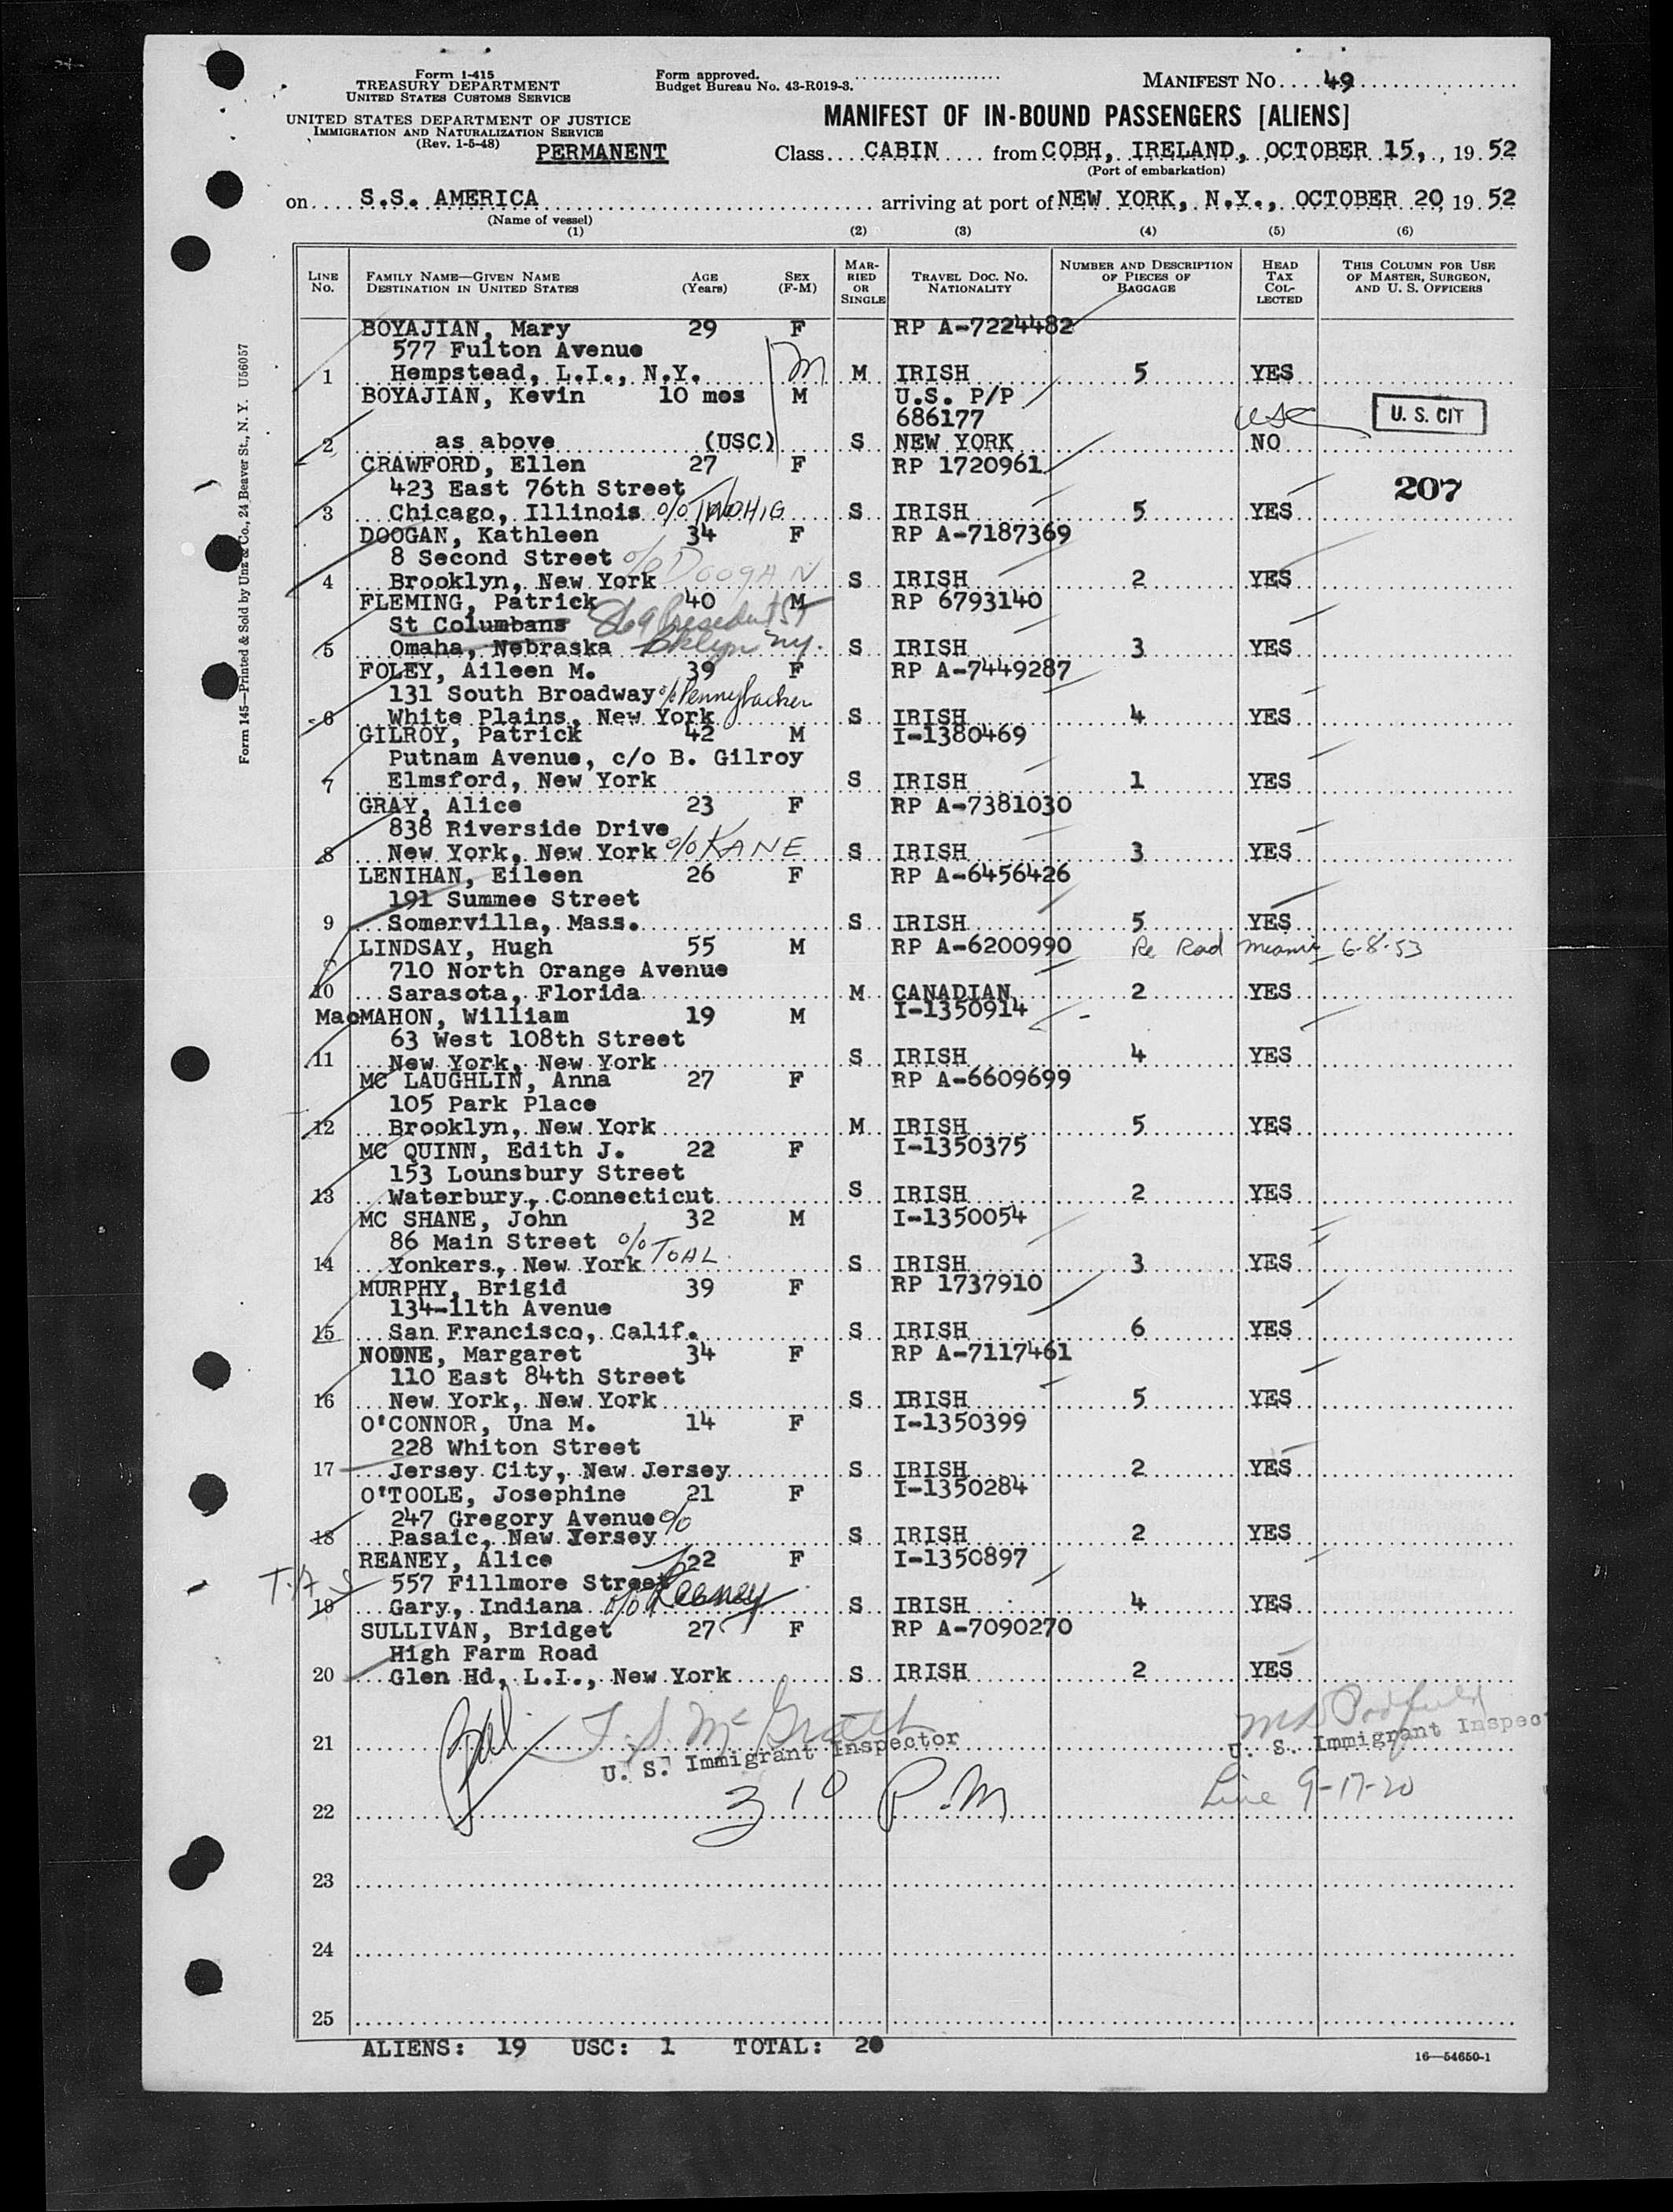 Form 1-415
TREASURY DEPARTMENT
UNITED STATES CUSTOMS SERVICE
UNITED STATES DEPARTMENT OF JUSTICE
IMMIGRATION AND NATURALIZATION SERVICE
(Rev. 1-5-48)
PERMANENT
Form approved.
Budget Bureau No. 43-R019-3.
MANIFEST NO. 49
MANIFEST OF IN-BOUND PASSENGERS [ALIENS]
Class CABIN from COBH, IRELAND, OCTOBER 15, , 19 52
(Port of embarkation)
on S.S. AMERICA arriving at port of NEW YORK, N.Y., OCTOBER 20, 19 52
(Name of vessel)
(1) (2) (3) (4) (5) (6)
LINE NO. FAMILY NAME—GIVEN NAME DESTINATION IN UNITED STATES AGE (Years) SEX (F-M) MARRIED OR SINGLE TRAVEL DOC. NO. NATIONALITY NUMBER AND DESCRIPTION OF PIECES OF BAGGAGE HEAD TAX COLLECTED THIS COLUMN FOR USE OF MASTER, SURGEON, AND U. S. OFFICERS
BOYAJIAN, Mary 29 F RP A-7224482
577 Fulton Avenue
1 Hempstead, L.I., N.Y. M M IRISH 5 YES
BOYAJIAN, Kevin 10 mos M U.S. P/P
686177 USC U. S. CIT
2 as above (USC) S NEW YORK NO
CRAWFORD, Ellen 27 F RP 1720961
423 East 76th Street 207
3 Chicago, Illinois c/o TWOHIG S IRISH 5 YES
DOOGAN, Kathleen 34 F RP A-7187369
8 Second Street c/o DOOGAN
4 Brooklyn, New York S IRISH 2 YES
FLEMING, Patrick 40 M RP 6793140
St Columbans 869 President St
5 Omaha, Nebraska Bklyn NY. S IRISH 3 YES
FOLEY, Aileen M. 39 F RP A-7449287
131 South Broadway c/o Pennybacker
6 White Plains, New York S IRISH 4 YES
GILROY, Patrick 42 M I-1380469
Putnam Avenue, c/o B. Gilroy
7 Elmsford, New York S IRISH 1 YES
GRAY, Alice 23 F RP A-7381030
838 Riverside Drive
8 New York, New York c/o KANE S IRISH 3 YES
LENIHAN, Eileen 26 F RP A-6456426
191 Summee Street
9 Somerville, Mass. S IRISH 5 YES
LINDSAY, Hugh 55 M RP A-6200990 Re Rad Miami 6-8-53
710 North Orange Avenue
10 Sarasota, Florida M CANADIAN 2 YES
MacMAHON, William 19 M I-1350914
63 West 108th Street
11 New York, New York S IRISH 4 YES
MC LAUGHLIN, Anna 27 F RP A-6609699
105 Park Place
12 Brooklyn, New York M IRISH 5 YES
MC QUINN, Edith J. 22 F I-1350375
153 Lounsbury Street
13 Waterbury, Connecticut S IRISH 2 YES
MC SHANE, John 32 M I-1350054
86 Main Street c/o TOAL
14 Yonkers, New York S IRISH 3 YES
MURPHY, Brigid 39 F RP 1737910
134-11th Avenue
15 San Francisco, Calif. S IRISH 6 YES
NOONE, Margaret 34 F RP A-7117461
110 East 84th Street
16 New York, New York S IRISH 5 YES
O'CONNOR, Una M. 14 F I-1350399
228 Whiton Street
17 Jersey City, New Jersey S IRISH 2 YES
O'TOOLE, Josephine 21 F I-1350284
247 Gregory Avenue c/o
18 Pasaic, New Jersey S IRISH 2 YES
REANEY, Alice 22 F I-1350897
557 Fillmore Street
19 Gary, Indiana c/o Reaney S IRISH 4 YES
SULLIVAN, Bridget 27 F RP A-7090270
High Farm Road
20 Glen Hd, L.I., New York S IRISH 2 YES
21 T. S. McGrath
U. S. Immigrant Inspector
U. S. Immigrant Inspec
22 3 10 P.M Line 9-17-20
23
24
25
ALIENS: 19 USC: 1 TOTAL: 20
16—54650-1
Form 145—Printed & Sold by Unz & Co., 24 Beaver St., N. Y. U56057